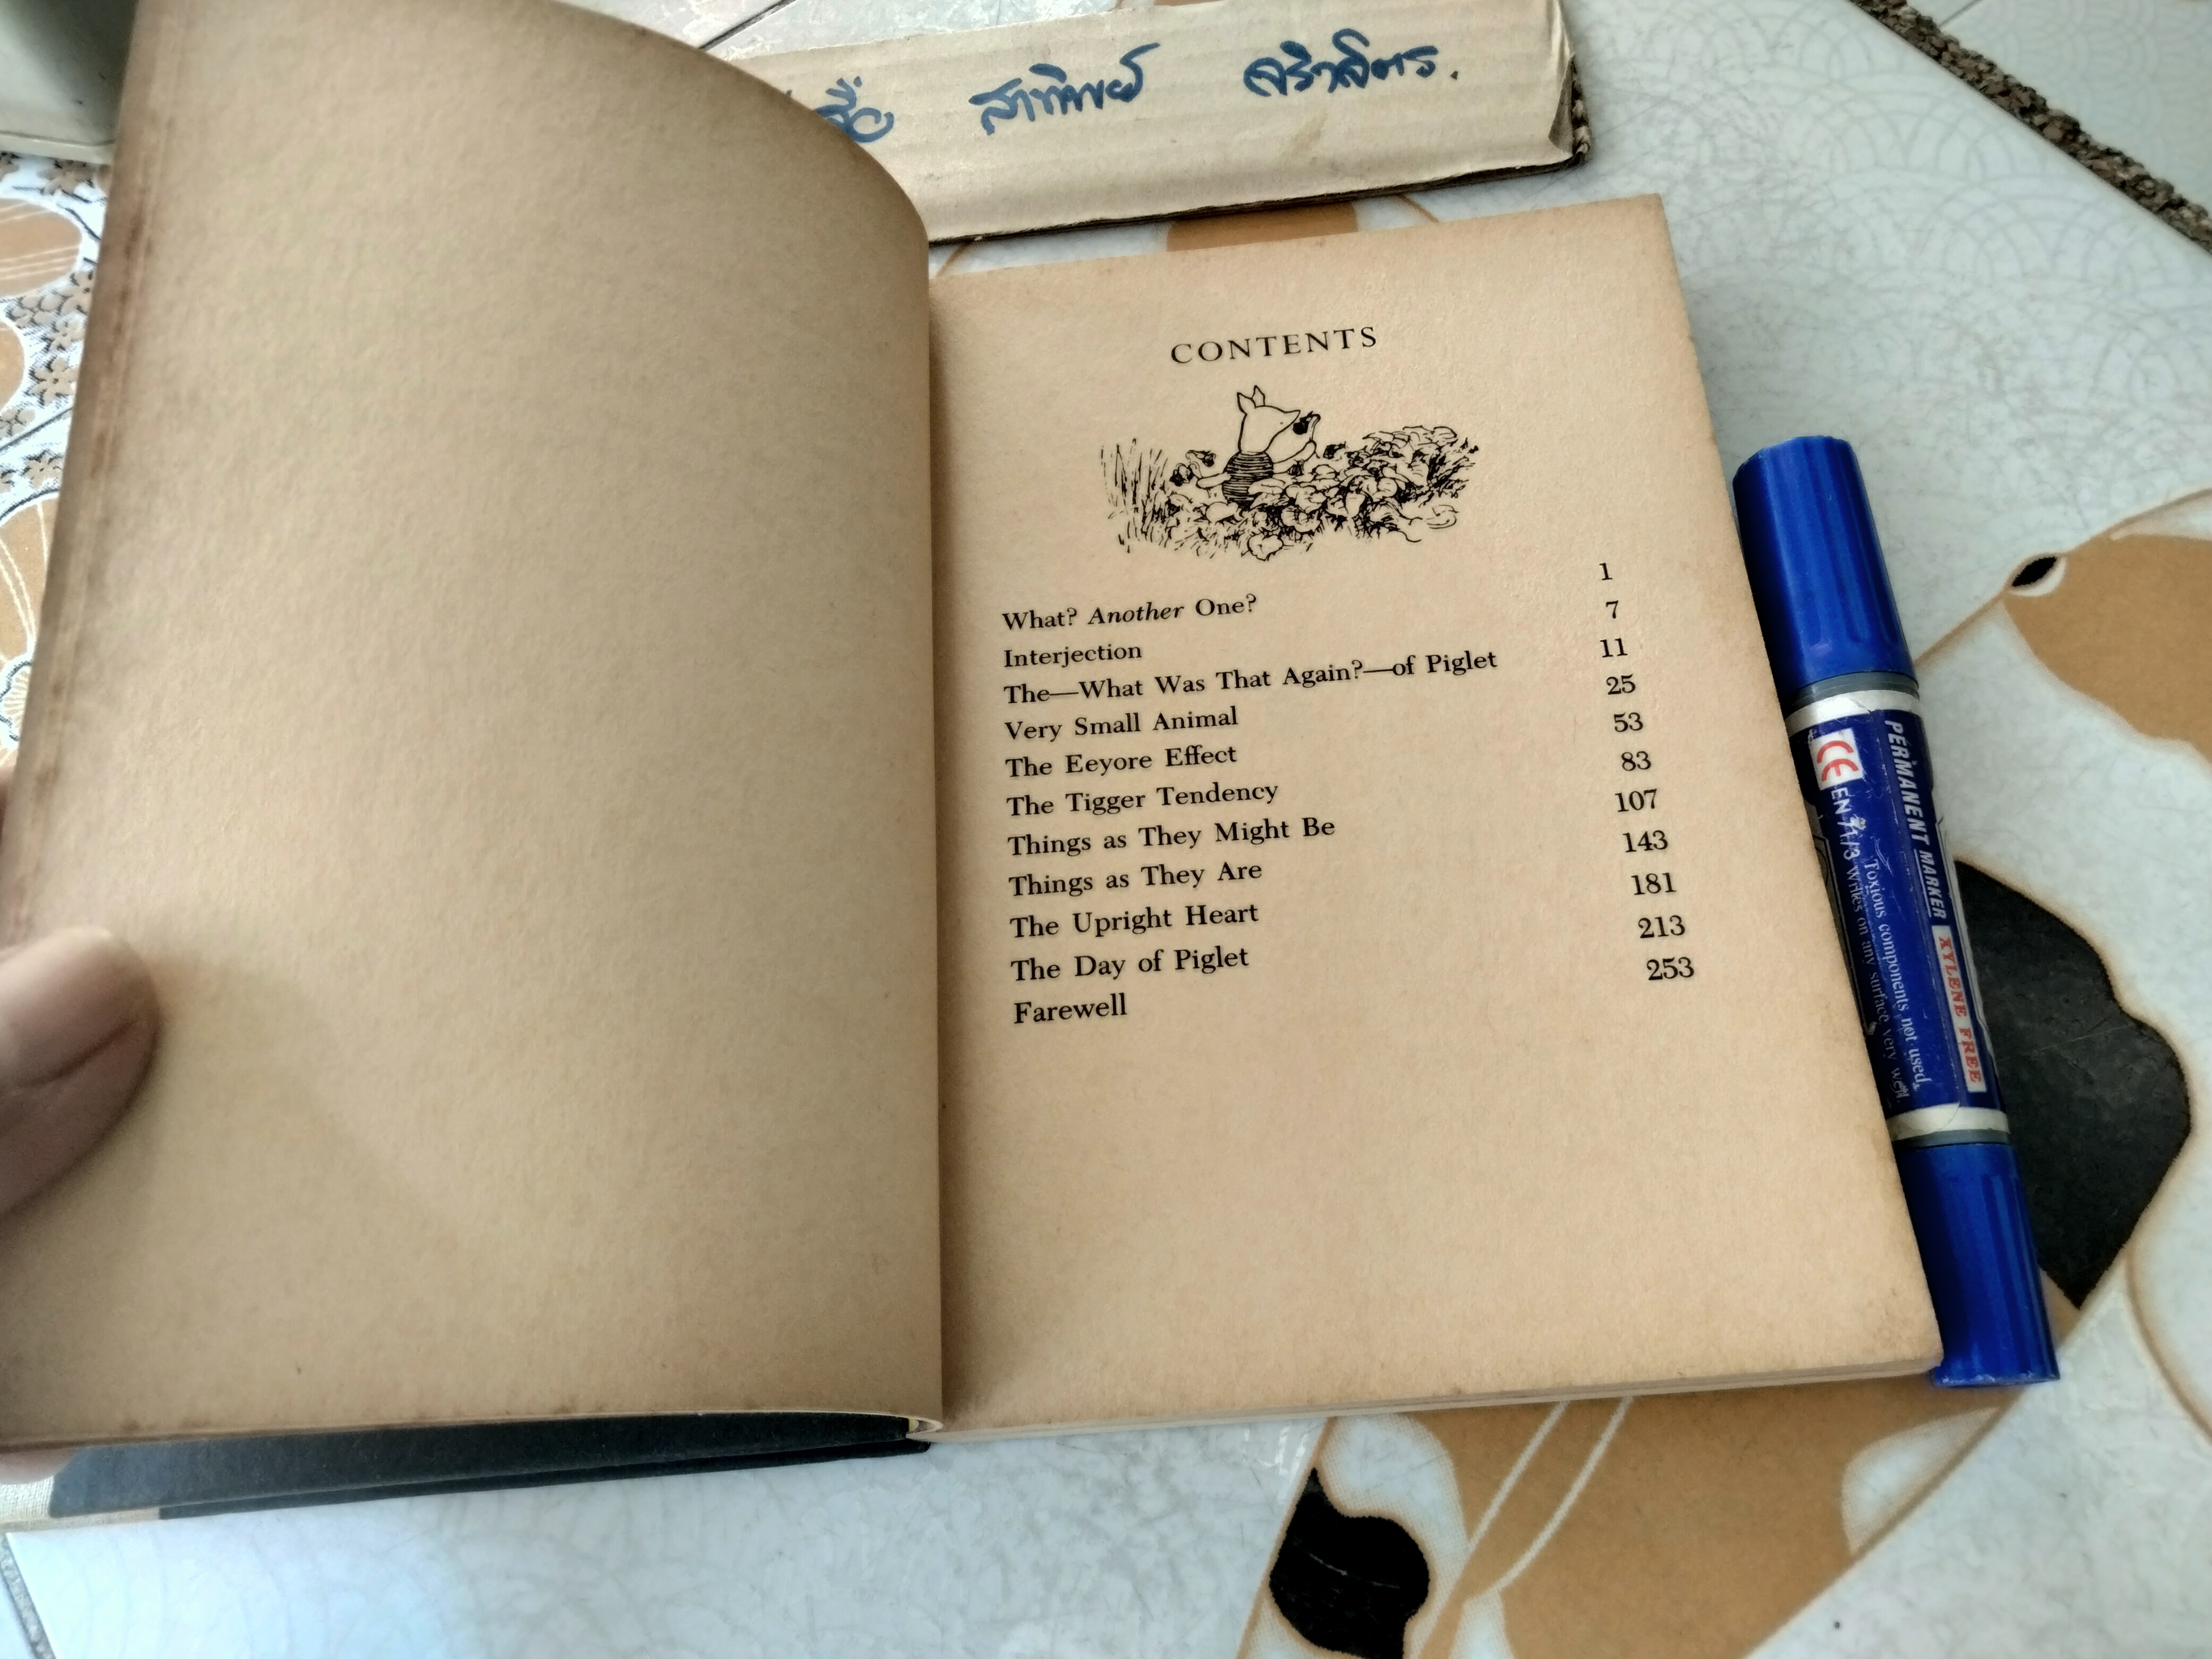 สาทิพย์
CONTENTS
What? Another One? 1
Interjection 7
The—What Was That Again?—of Piglet 11
Very Small Animal 25
The Eeyore Effect 53
The Tigger Tendency 83
Things as They Might Be 107
Things as They Are 143
The Upright Heart 181
The Day of Piglet 213
Farewell 253
PERMANENT MARKER XYLENE FREE
Toxious components not used,
CE EN 71/3 Writes on any surface very well